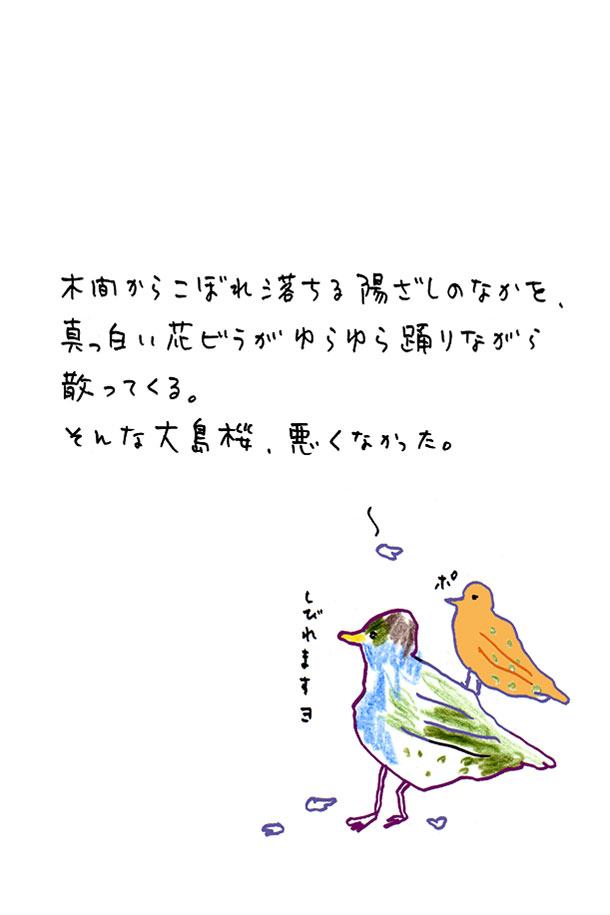 木間からこぼれ落ちる陽ざしのなかを、
真っ白い花ビラがゆらゆら踊りながら
散ってくる。
そんな大島桜、悪くなかった。
ポ
しびれますヨ